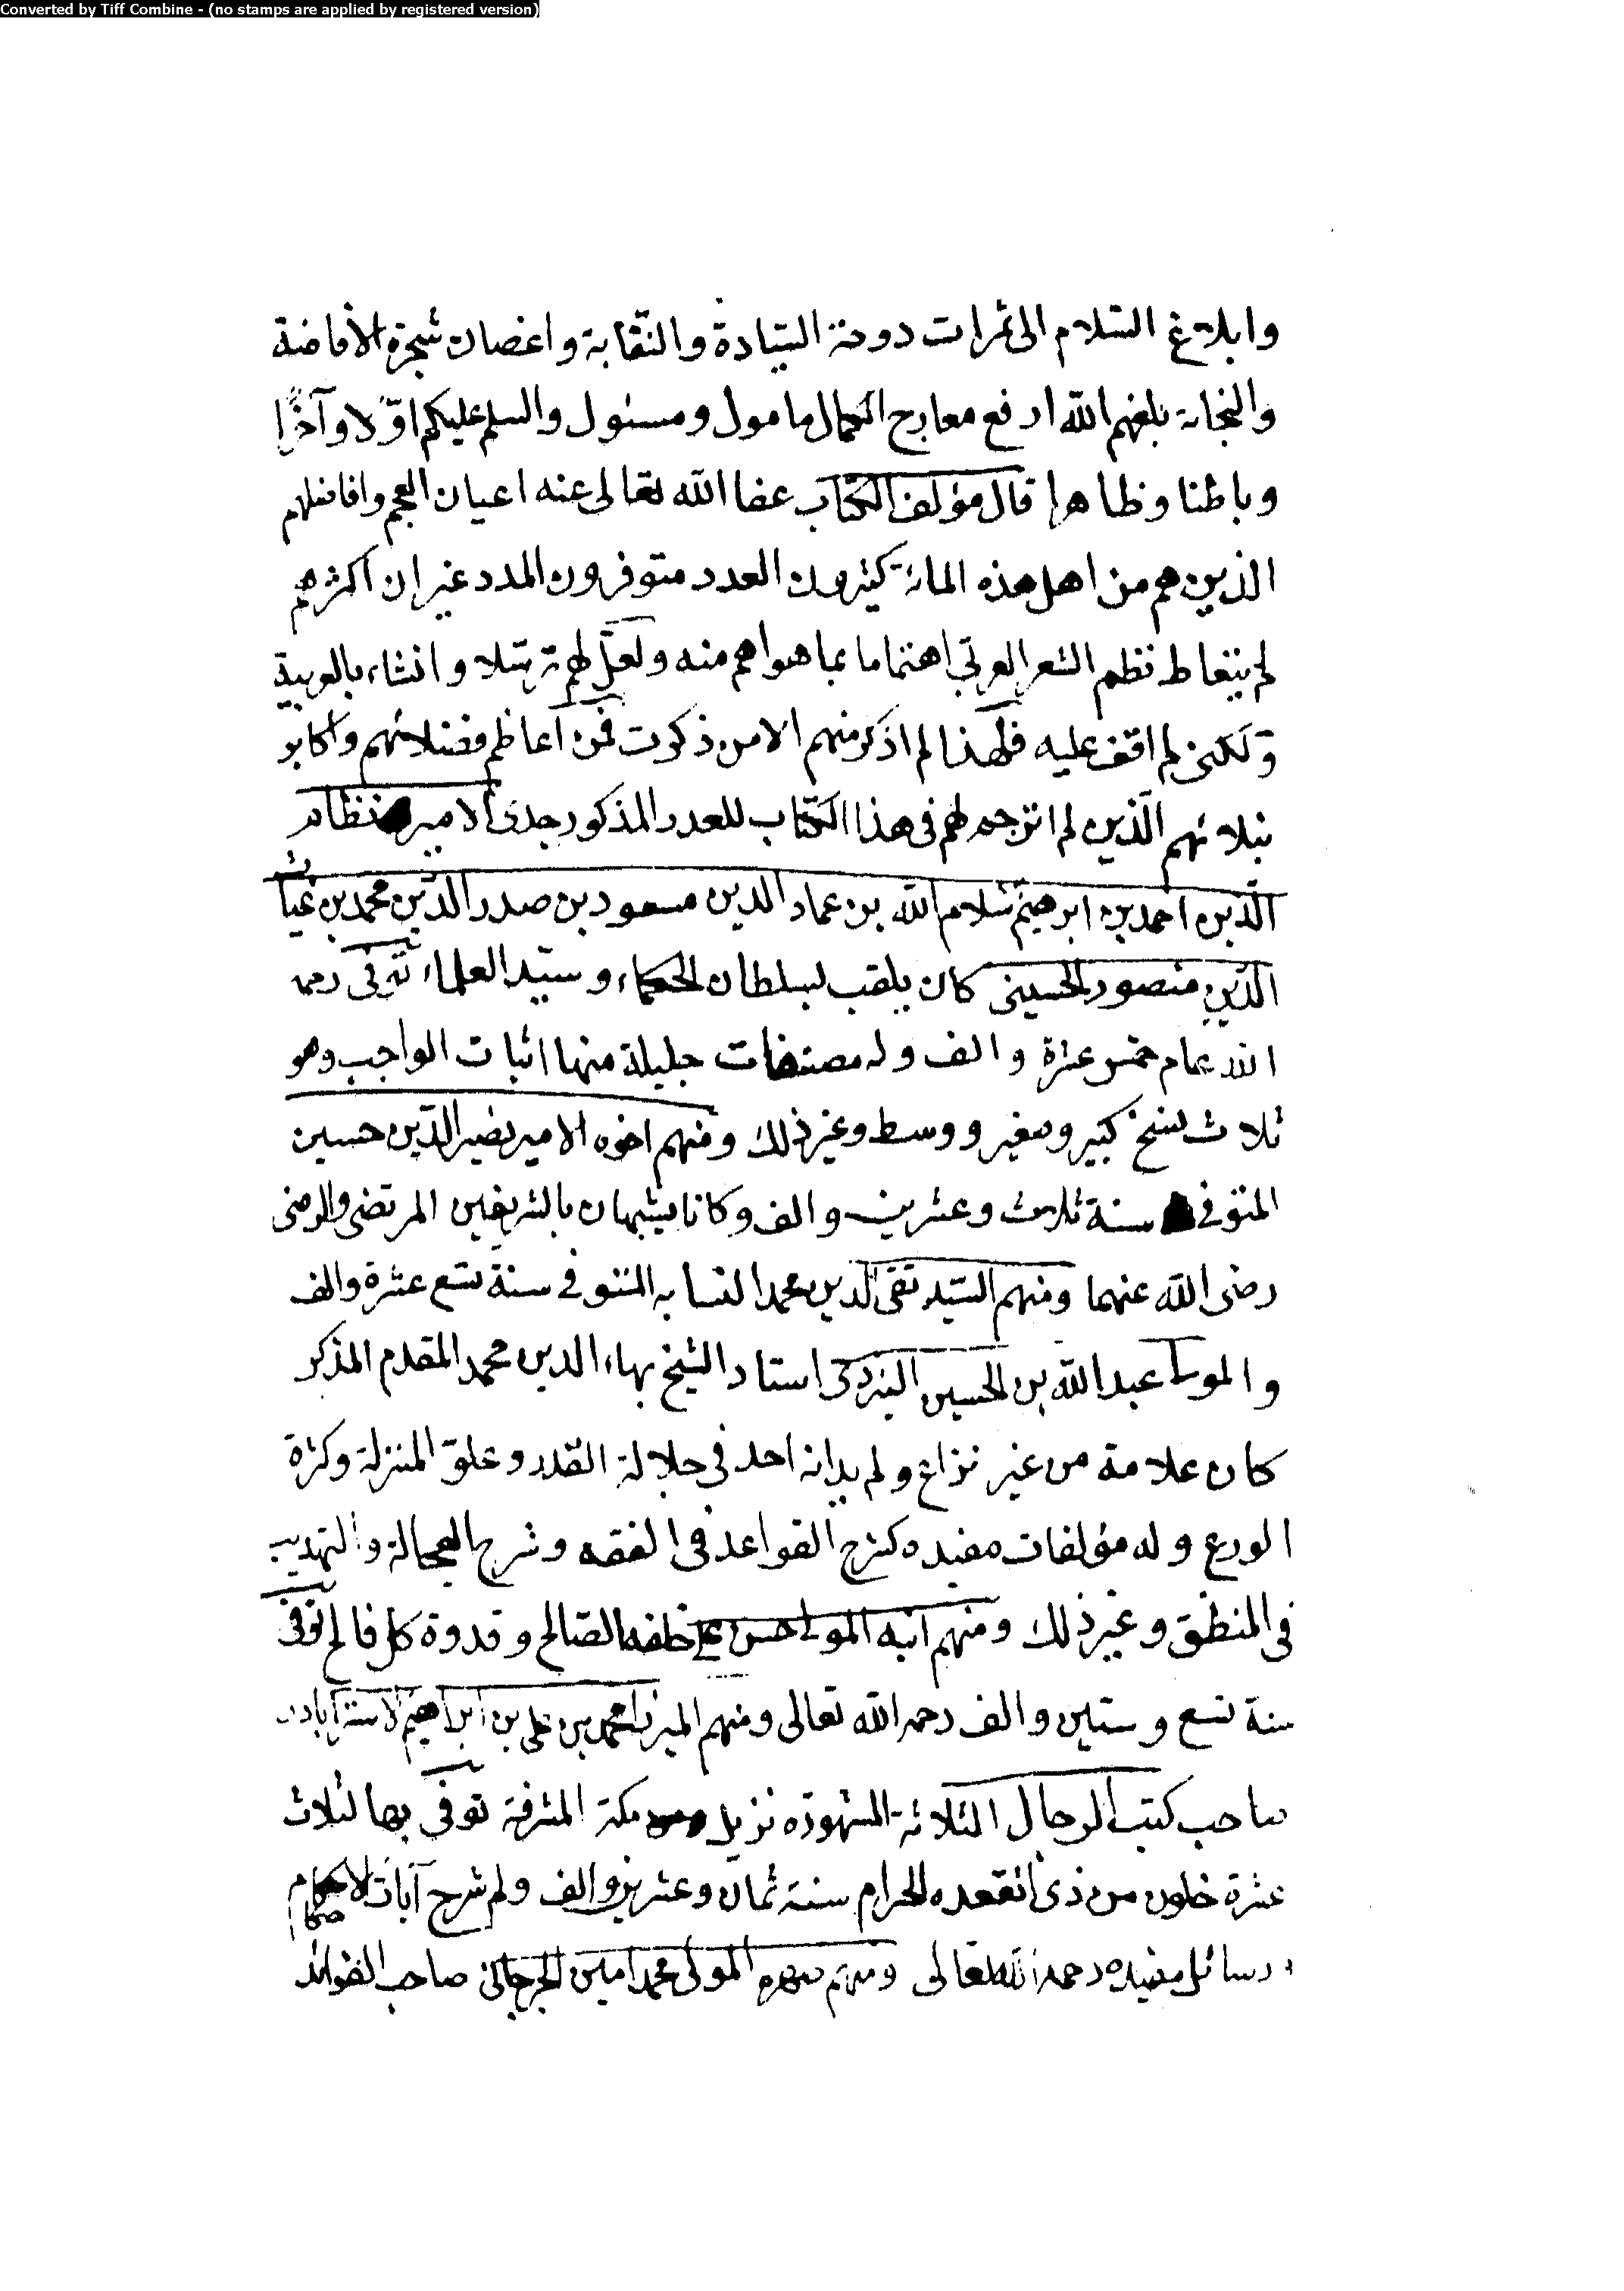 Converted by Tiff Combine - (no stamps are applied by registered version)
وابلاغ السّلام الى ثمرات دوحة السّيادة والنّقابة واغصان شجرة الافاضة
والنجابة بلغهم اللّه ارفع معارج الكمال مامول ومسئول والسلم عليكم اوّلا وآخرًا
وباطنا وظاهرا قال مؤلف الكتاب عفا اللّه تعالى عنه اعيان العجم وافاضلهم
الذين هم من اهل هذه المائة كثيرون العدد متوفرون المدد غير ان اكثرهم
لم يتعاط نظم الشعر العربي اهتماما بما هواهم منه ولعلّ لهم ترسّلا وانشاء بالعربية
ولكنى لم اقف عليه فلهذا لم اذكر منهم الا من ذكرت فمن اعاظم فضلائهم واكابر
نبلائهم الّذين لم اترجم لهم فى هذا الكتاب للعدر المذكور جدى الامير نظام
الدّين احمد بن ابرهيم سلام اللّه بن عماد الدين مسعود بن صدر الدّين محمد بن غياث
الدّين منصور الحسينى كان يلقب لسلطان الحكماء وسيّد العلماء توفى رحمه
اللّه عام خمس عشرة والف وله مصنفات جليلة منها اثبات الواجب وهو
ثلاث نسخ كبير وصغير ووسط وغير ذلك ومنهم اخوه الامير نصير الدّين حسين
المتوفى سنة ثلاث وعشرين والف وكانا يشبهان بالشريفين المرتضى والرضى
رضى اللّه عنهما ومنهم السّيد تقى الدين محمد النسابه المتوفى سنة تسع عشرة والف
والمولى عبد اللّه بن الحسين اليزدى استاد الشيخ بهاء الدين محمد المقدم الذكر
كان علامة من غير نزاع ولم يدانه احد فى جلالة القدر وعلوّ المنزلة وكثرة
الورع وله مؤلفات مفيده كشرح القواعد فى الفقه وشرح العجالة والتهذيب
فى المنطق وغير ذلك ومنهم ابنه المولى حسن على خلفه الصّالح وقدوة كل فالح توفى
سنة تسع وستين والف رحمه اللّه تعالى ومنهم الميرزا محمد بن على بن ابراهيم الاسترآبادى
صاحب كتب الرجال الثلاثة المشهورة نزيل مكة المشرفة توفى بها لثلاث
عشرة خلون من ذى القعده الحرام سنة ثمان وعشرين والف وله شرح آيات الاحكام
ورسائل مفيده رحمه اللّه تعالى ومنهم صهره المولى محمد امين الجرجانى صاحب الفوائد